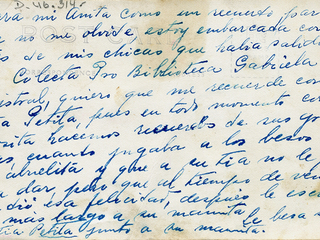 D. 46.314.
mi Anita como un recuerdo par
no me olvide, estoy embarcada con
s de mis chicas que había salido
Colecta Pro Biblioteca Gabriela
istral, quiero que me recuerde con
a Petita, pues en todo momento con
ita hacemos recuerdos de sus
s, cuando jugaba a los besos
abuelita y que a su tía no le
a dar, pero que al tiempo de
dió esa felicidad, después le
mas largo a su mamita le besa
tía Petita junto a su mamita.